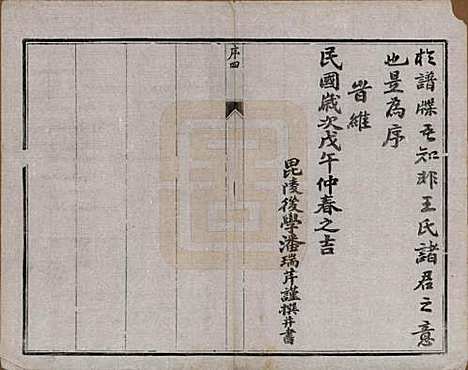 於譜牒吾知非王氏諸君之意
也是為序
旹維
民國歲次戊午仲春之吉
毘陵後學潘瑞芹謹撰并書
序四